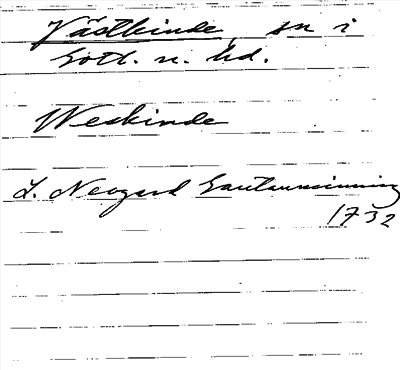 Västkinde, sn i
Gotl. n. hd.
Weskinde
L. Neogard Gautauminning
1732